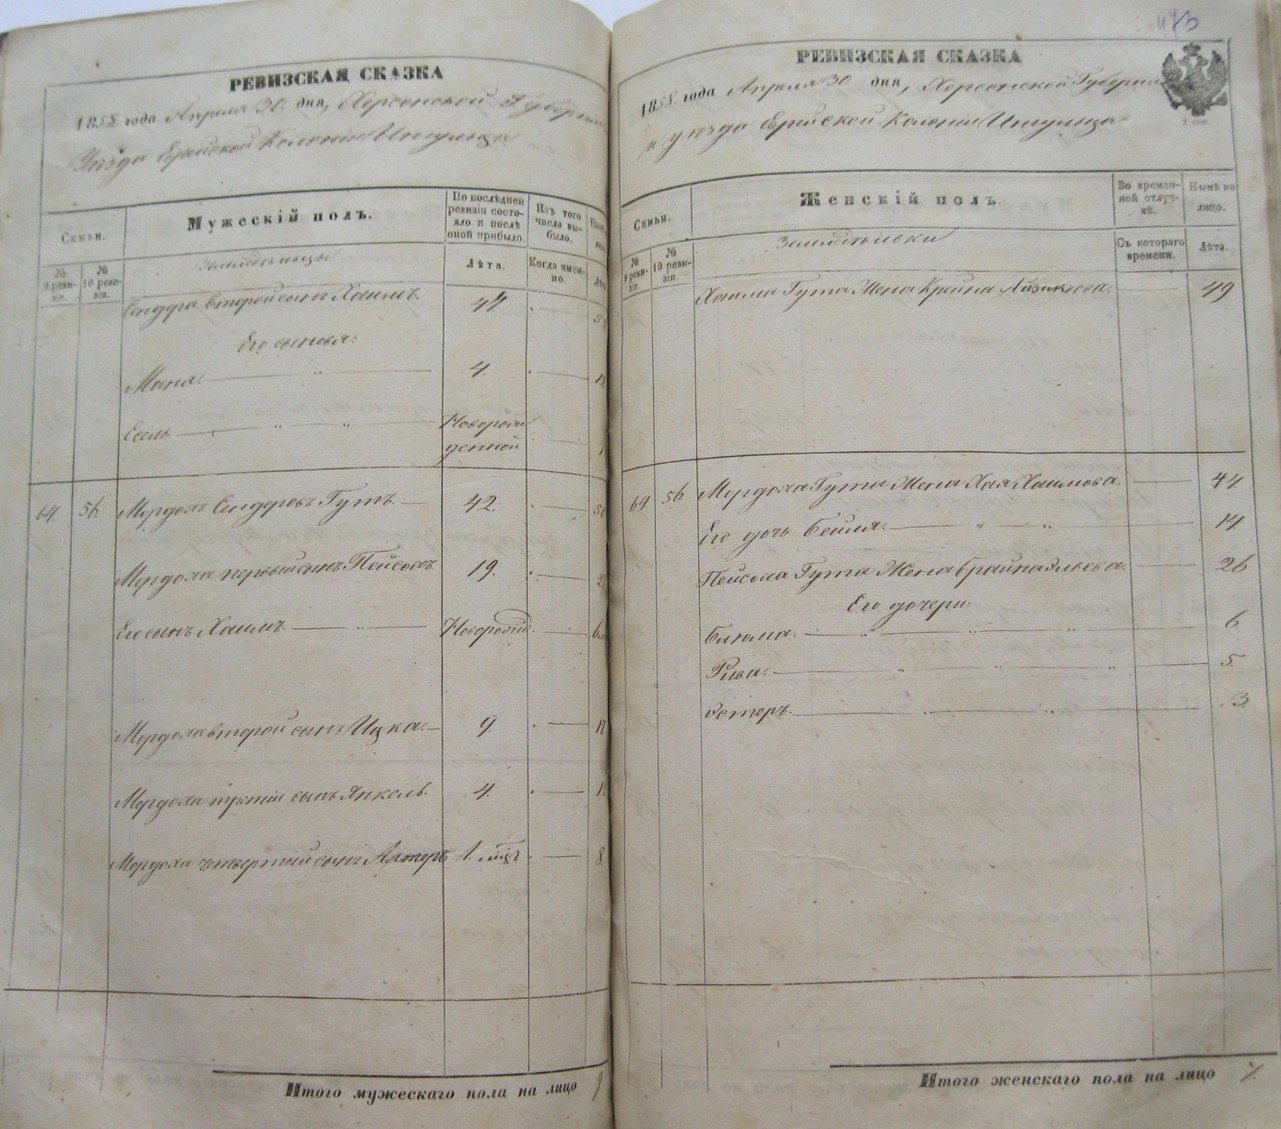 РЕВИЗСКАЯ СКАЗКА
1858 года Апреля 30 дня, Херсонской Губерніи
Уезда Еврейской Колоніи Ингульца
Семьи.
Мужескій полъ.
По послѣдней ревизіи состояло и послѣ оной прибыло.
Изъ того числа выбыло.
№ 9 ревизіи.
№ 10 ревизіи.
Земледѣльцы
Лѣта.
Когда именно.
Сендера второй сынъ Хаимъ. 44
Его сыновья:
Мана. 4.
Есель Новорожденной
64. 56. Мордохъ Сендеровъ Гутъ. 42.
Мордоха первый сынъ Пейсохъ. 19.
Его сынъ Хаимъ
Мордоха второй сынъ Ицка. 9. 18
Мордоха третій сынъ Янкель. 4.
Мордоха четвертый сынъ 8
Итого мужескаго пола на лицо 9
473
РЕВИЗСКАЯ СКАЗКА
1858 года Апреля 30 дня, Херсонской Губерніи
уезда Еврейской Колоніи Ингульца
Семьи.
Женскій полъ.
Во временной отлучкѣ.
Нынѣ на лицо.
№ 9 ревизіи.
№ 10 ревизіи.
Земледѣлки
Съ котораго времени.
Лѣта.
Хаима Гута Жена Крейна Айзикова. 49
64 56 Мордоха Гута Жена Хая Хаимова. 44.
Его дочь Бейля. 14
Пейсоха Гута Жена 26
Его дочери:
Блюма. 6
Рива. 5.
Эстеръ. 3
Итого женскаго пола на лицо 7.